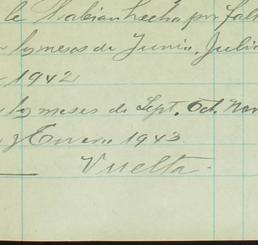 le habian hecha por fal
los meses de Junio, Julio
1942
los meses de Sept. Oct. Nov
y Enero 1943.
Vuelta.